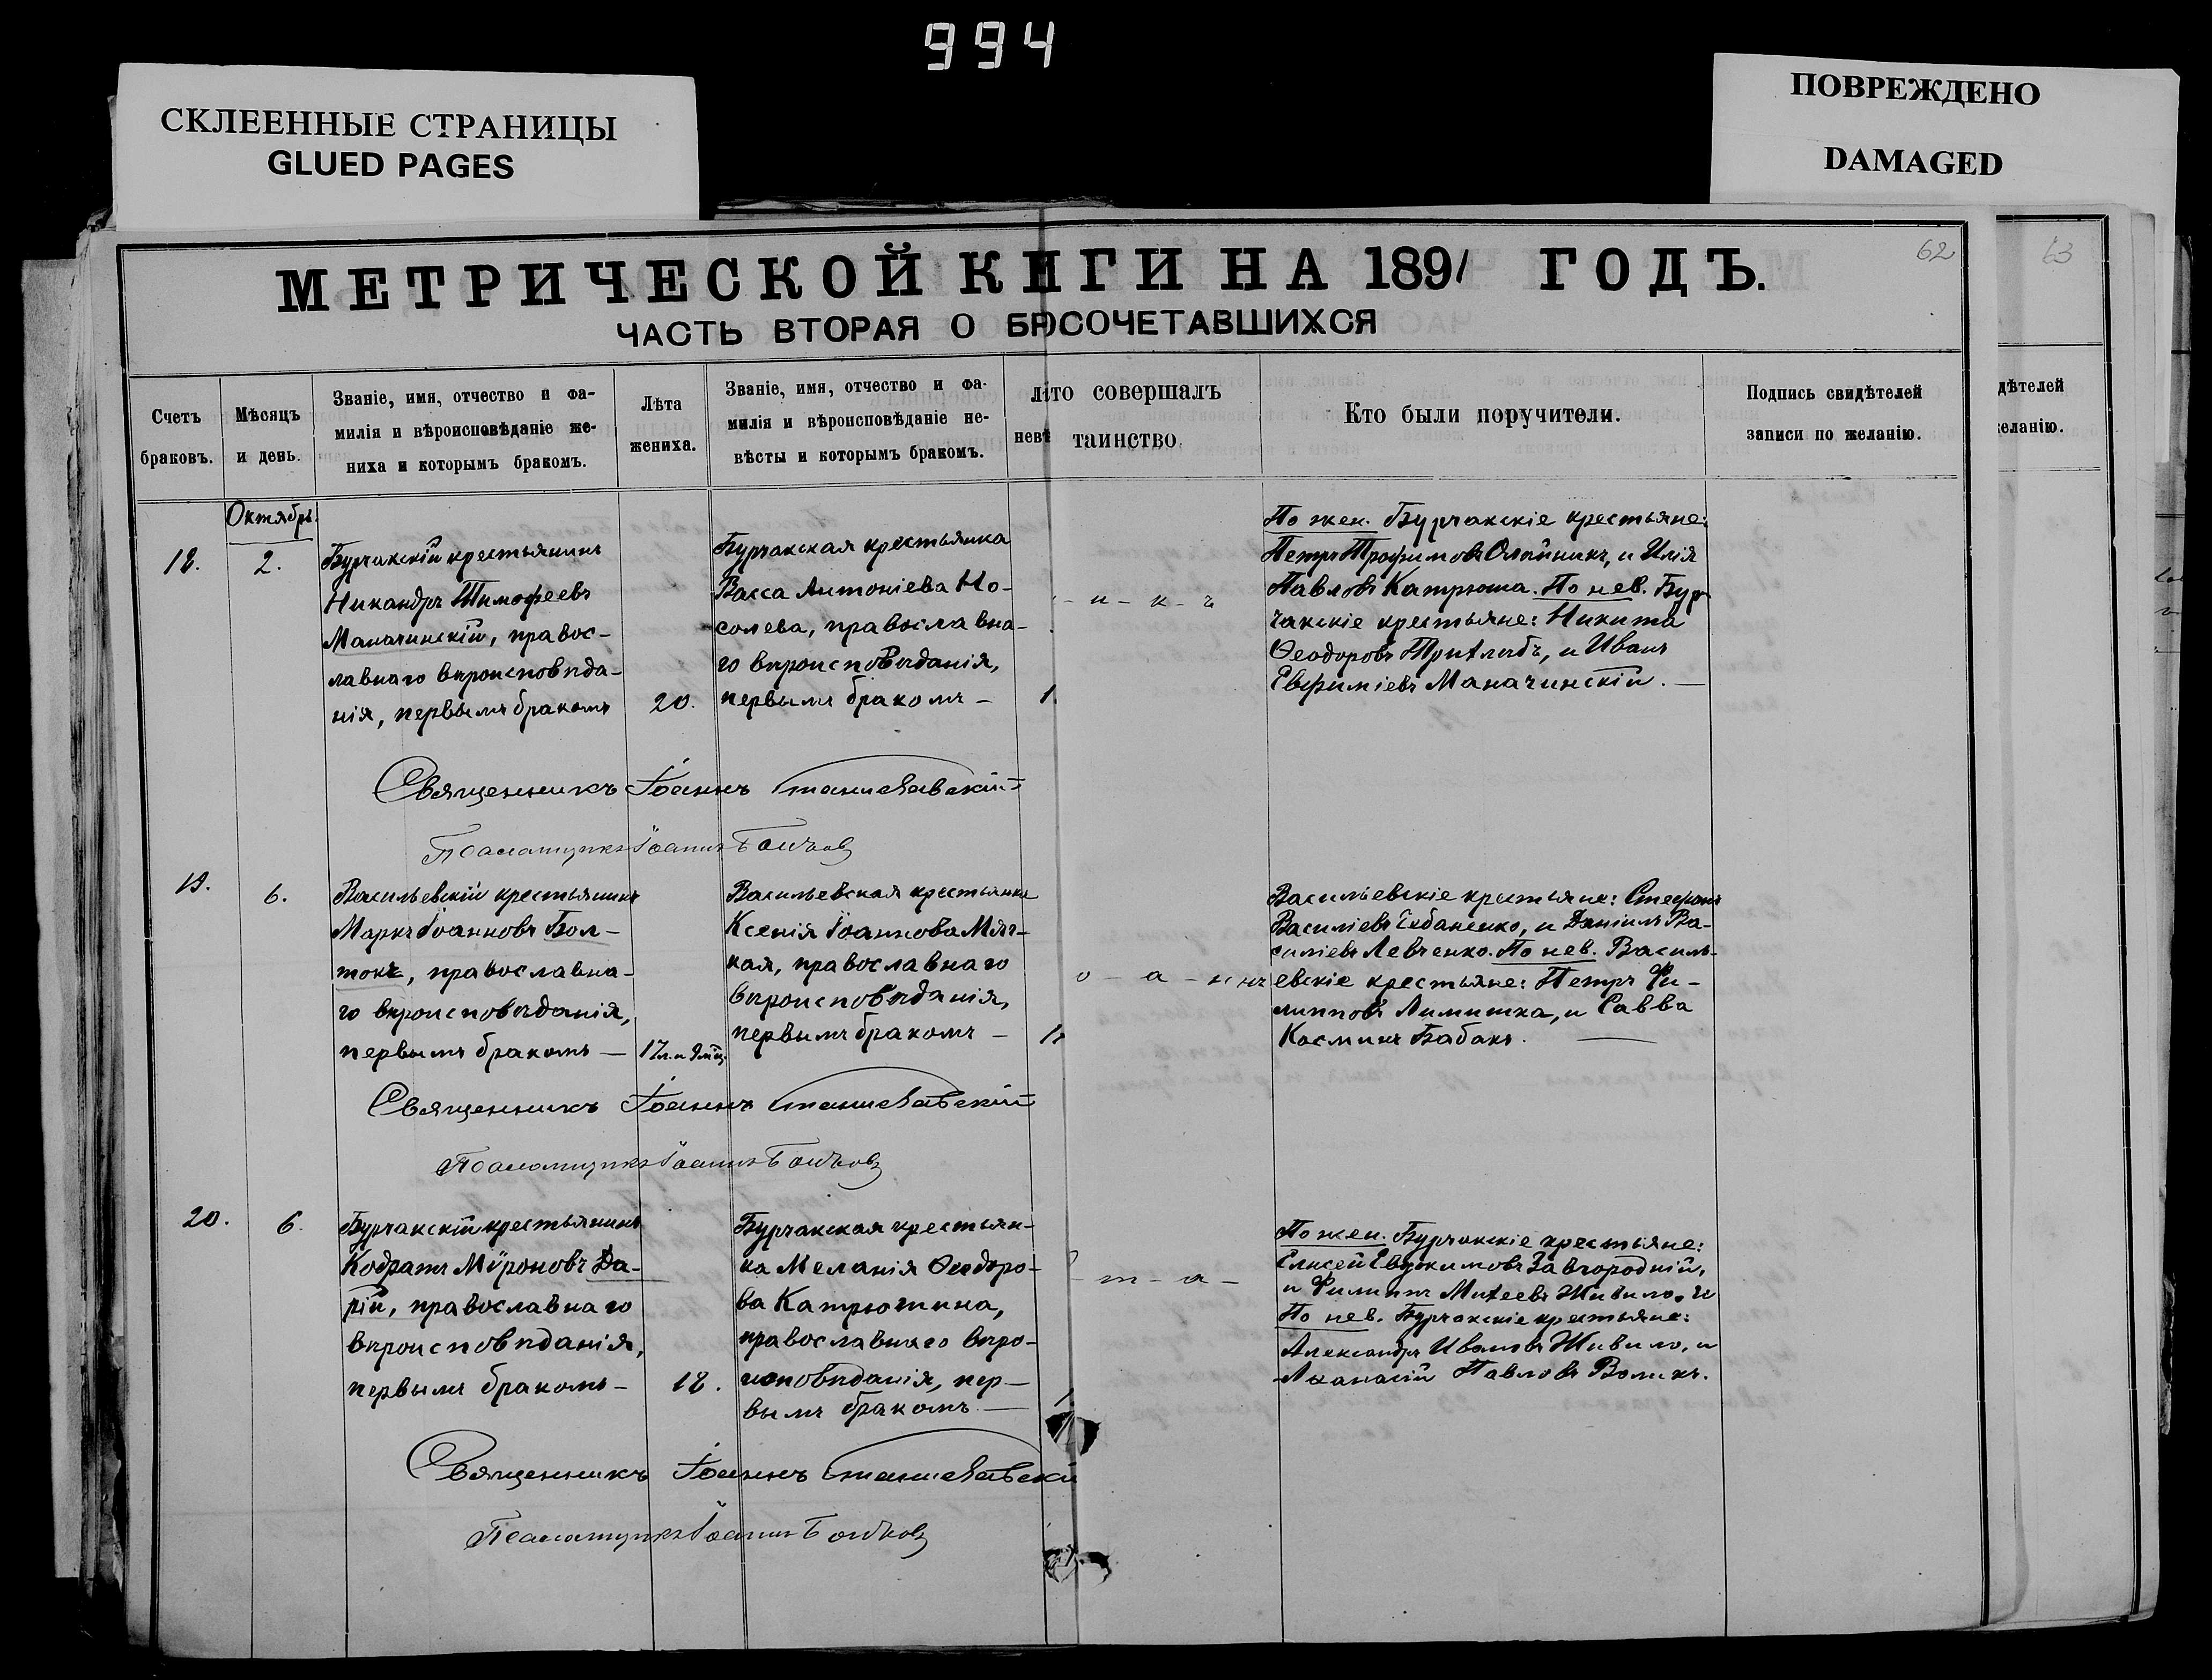 994
СКЛЕЕННЫЕ СТРАНИЦЫ
GLUED PAGES
ПОВРЕЖДЕНО
DAMAGED
62
63
МЕТРИЧЕСКОЙ К ГИ НА 1891 ГОДЪ.
ЧАСТЬ ВТОРАЯ О Б СОЧЕТАВШИХСЯ
Счетъ
браковъ.
Мѣсяцъ
и день.
Званіе, имя, отчество и фа-
милія и вѣроисповѣданіе же-
ниха и которымъ бракомъ.
Лѣта
жениха.
Званіе, имя, отчество и фа-
милія и вѣроисповѣданіе не-
вѣсты и которымъ бракомъ.
то совершалъ
таинство.
Кто были поручители.
Подпись свидѣтелей
записи по желанію.
дѣтелей
желанію.
Октябрь.
18.
2.
Бурчакскій крестьянинъ
Никандръ Тимофеевъ
Маначинскій, правос-
лавнаго вѣроисповѣда-
нія, первымъ бракомъ
20.
Бурчакская крестьянка
Васса Антоніева Но-
солева, православна-
го вѣроисповѣданія,
первымъ бракомъ –
1.
- и - к - ъ
По жен. Бурчакскіе крестьяне:
Петръ Трофимовъ Олійникъ, и Илія
Павловъ Катрюша. По нев. Бур-
чакскіе крестьяне: Никита
Ѳеодоровъ Притлѣбъ, и Иванъ
Евфиміевъ Маначинскій. —
Священникъ Іоаннъ Станиславскій
Псаломщикъ Іоаннъ
19.
6.
Васильевскій крестьянинъ
Маркъ Іоанновъ Бол-
токъ, православна-
го вѣроисповѣданія,
первымъ бракомъ —
17 л. и 9 мѣц.
Васильевская крестьянка
Ксенія Іоаннова Мяг-
кая, православнаго
вѣроисповѣданія,
первымъ бракомъ –
1
о - а - н нъ
Васильевскіе крестьяне: Стефанъ
Василіевъ Чебаненко, и Даніилъ Ва-
силіевъ Левченко. По нев. Василь-
евскіе крестьяне: Петръ Фи-
липповъ Лимишка, и Савва
Косминъ Бабакъ. —
Священникъ Іоаннъ Станиславскій
Псаломщикъ Іоаннъ
20.
6.
Бурчакскій крестьянинъ
Кодратъ Мѵроновъ Да-
рій, православнаго
вѣроисповѣданія,
первымъ бракомъ –
18.
Бурчакская крестьян-
ка Меланія Ѳеодоро-
ва Катрюшина,
православнаго вѣро-
исповѣданія, пер-
вымъ бракомъ. —
- т - а -
По жен. Бурчакскіе крестьяне:
Елисей Евдокимовъ Завгородній,
и Филиппъ Михеевъ Живило. И
По нев. Бурчакскіе крестьяне:
Александръ Ивановъ Живило, и
Аѳанасій Павловъ Воликъ.
Священникъ Іоаннъ Станиславскі
Псаломщикъ Іоаннъ